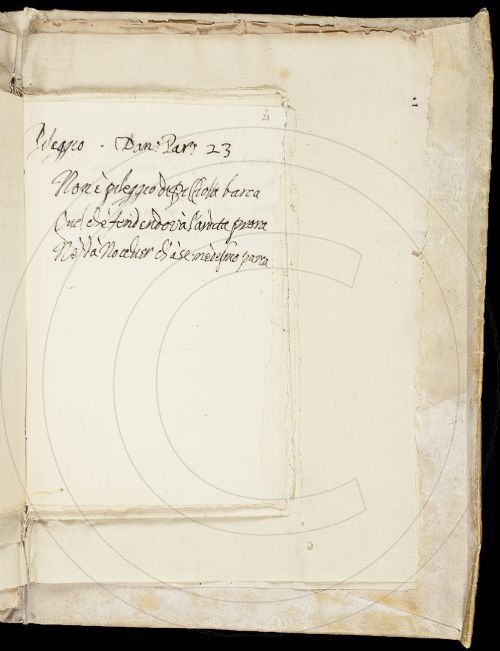 Pileggio . Dan: Par: 23
Non è pileggio di picciola barca
Quel ch'è fendendo và l'ardita prora
Nè da Nocchier ch'à se medesmo parca